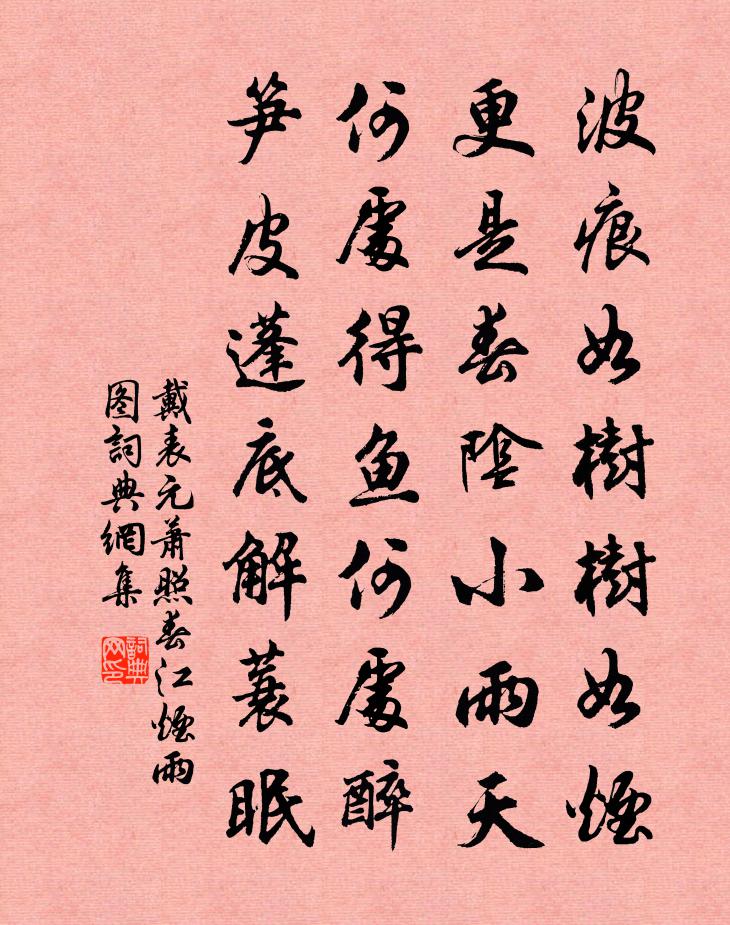 波痕如樹樹如煙
更是春陰小雨天
何處得魚何處醉
笋皮蓬底解蓑眠
戴表元蕭照春江煙雨
图詞典網集
詞典
网印